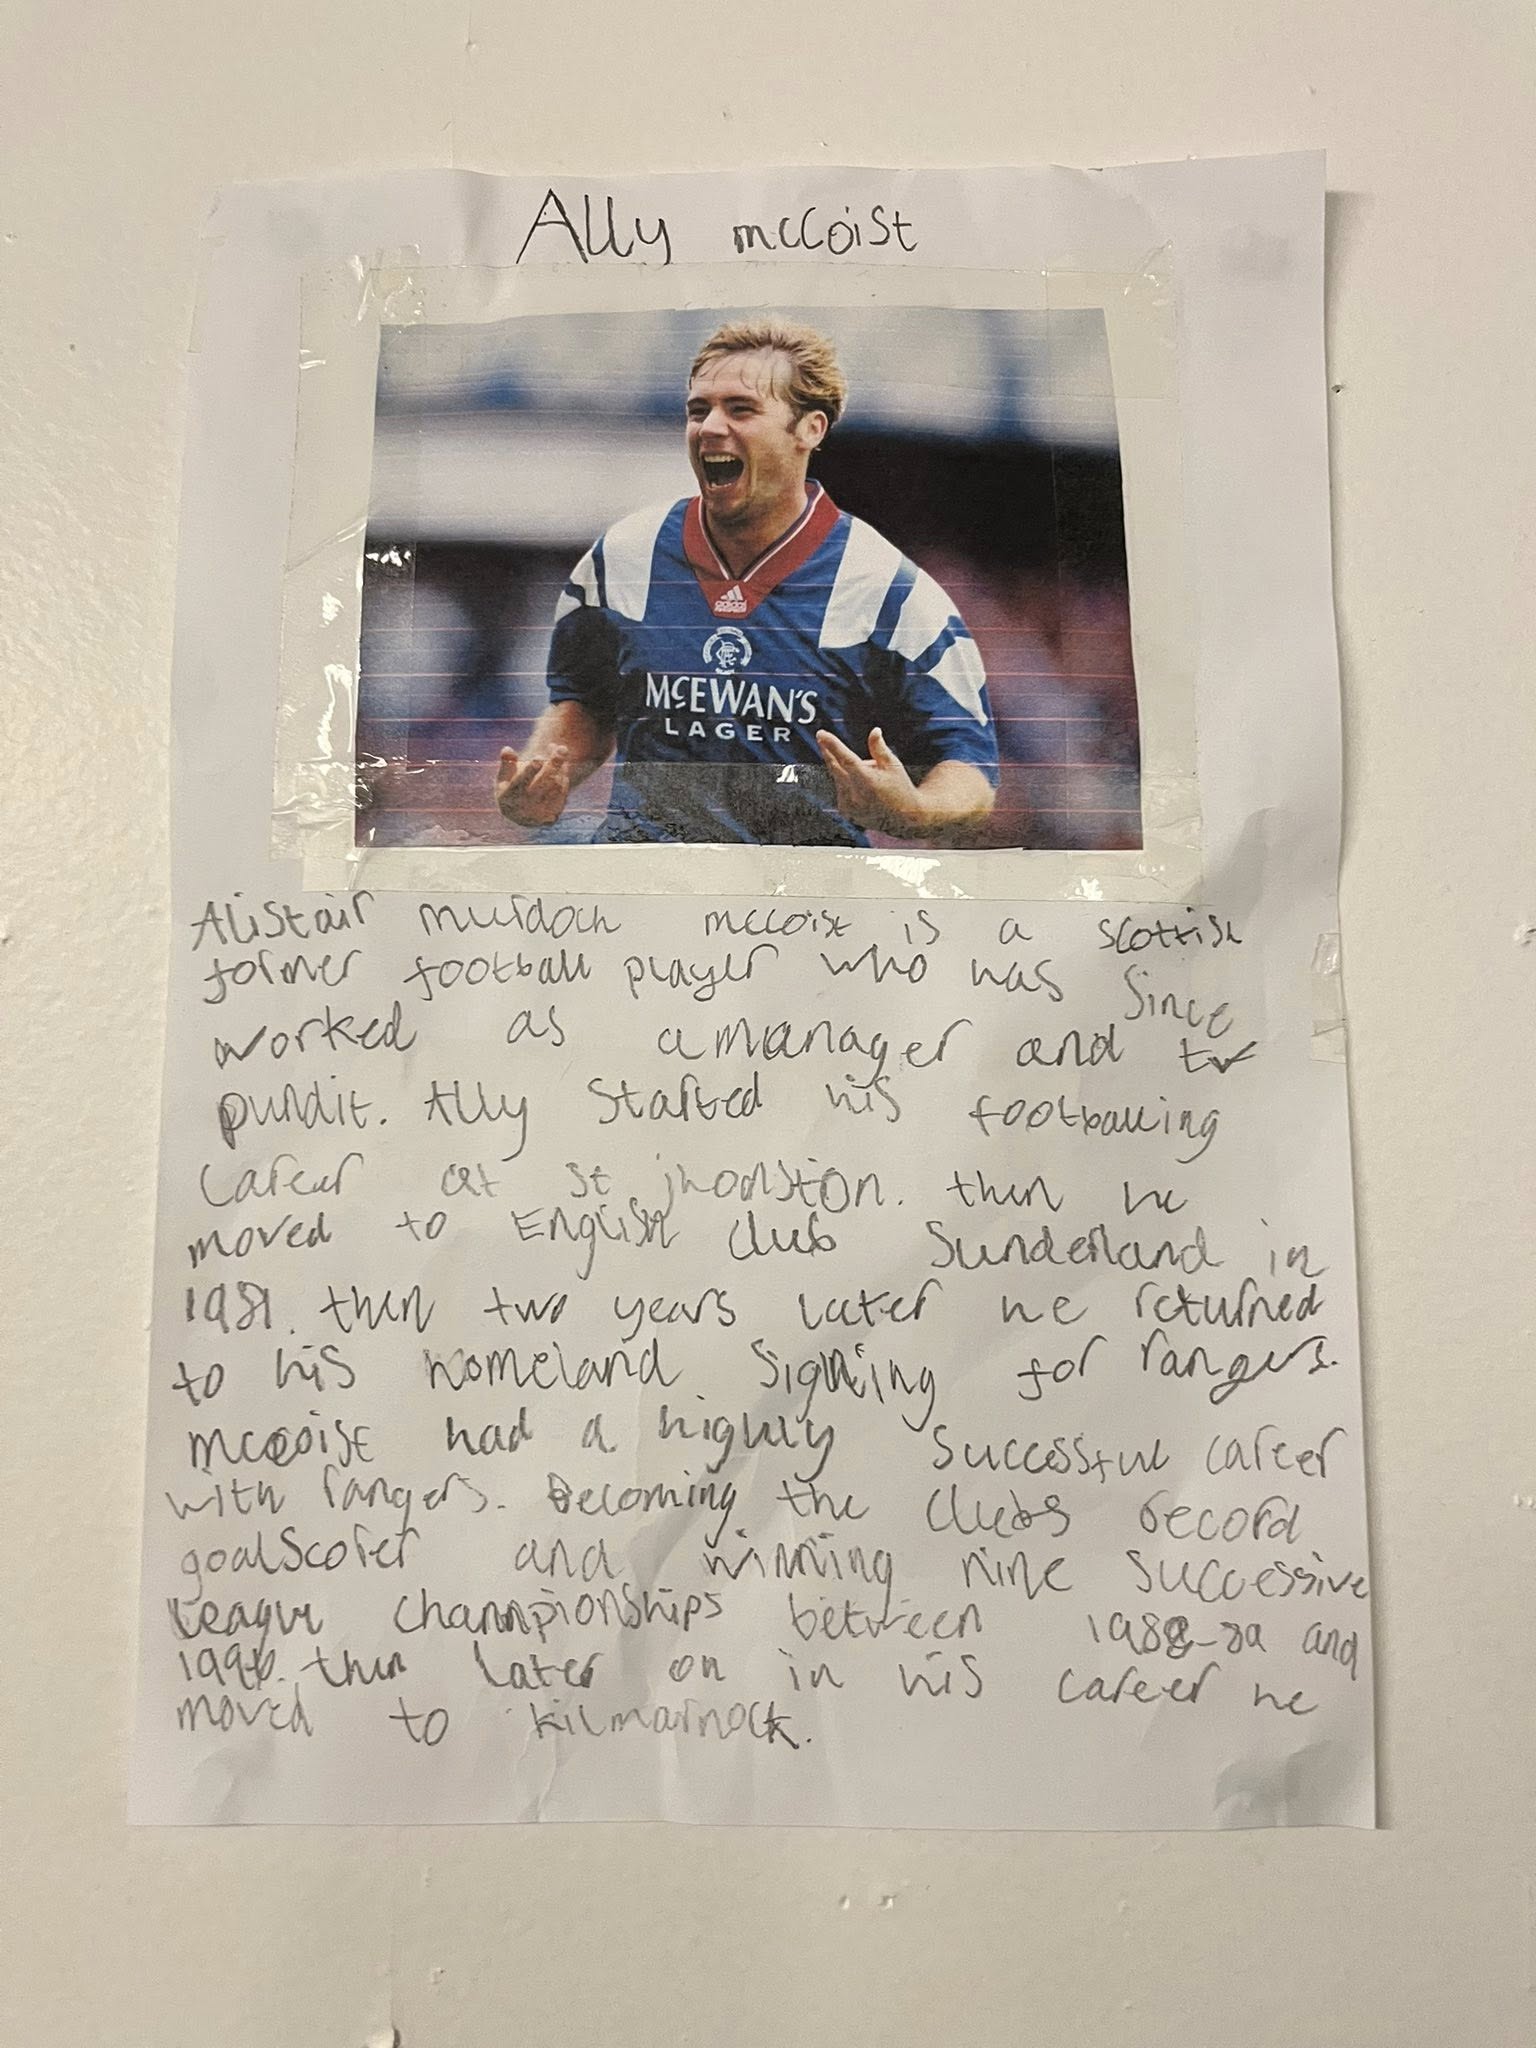 Ally mccoist
adidas
McEWAN'S
LAGER
Alistair murdoch mccoist is a scottish
former football player who has since
worked as a manager and tv
pundit. Ally started his footballing
career at st jhonston. then he
moved to English club Sunderland in
1981. then two years later he returned
to his homeland signing for rangers.
mccoist had a highly successful career
with rangers. Becoming the clubs record
goalscorer and winning nine successive
league championships between 1988-89 and
then later on in his career he
moved to kilmarnock.